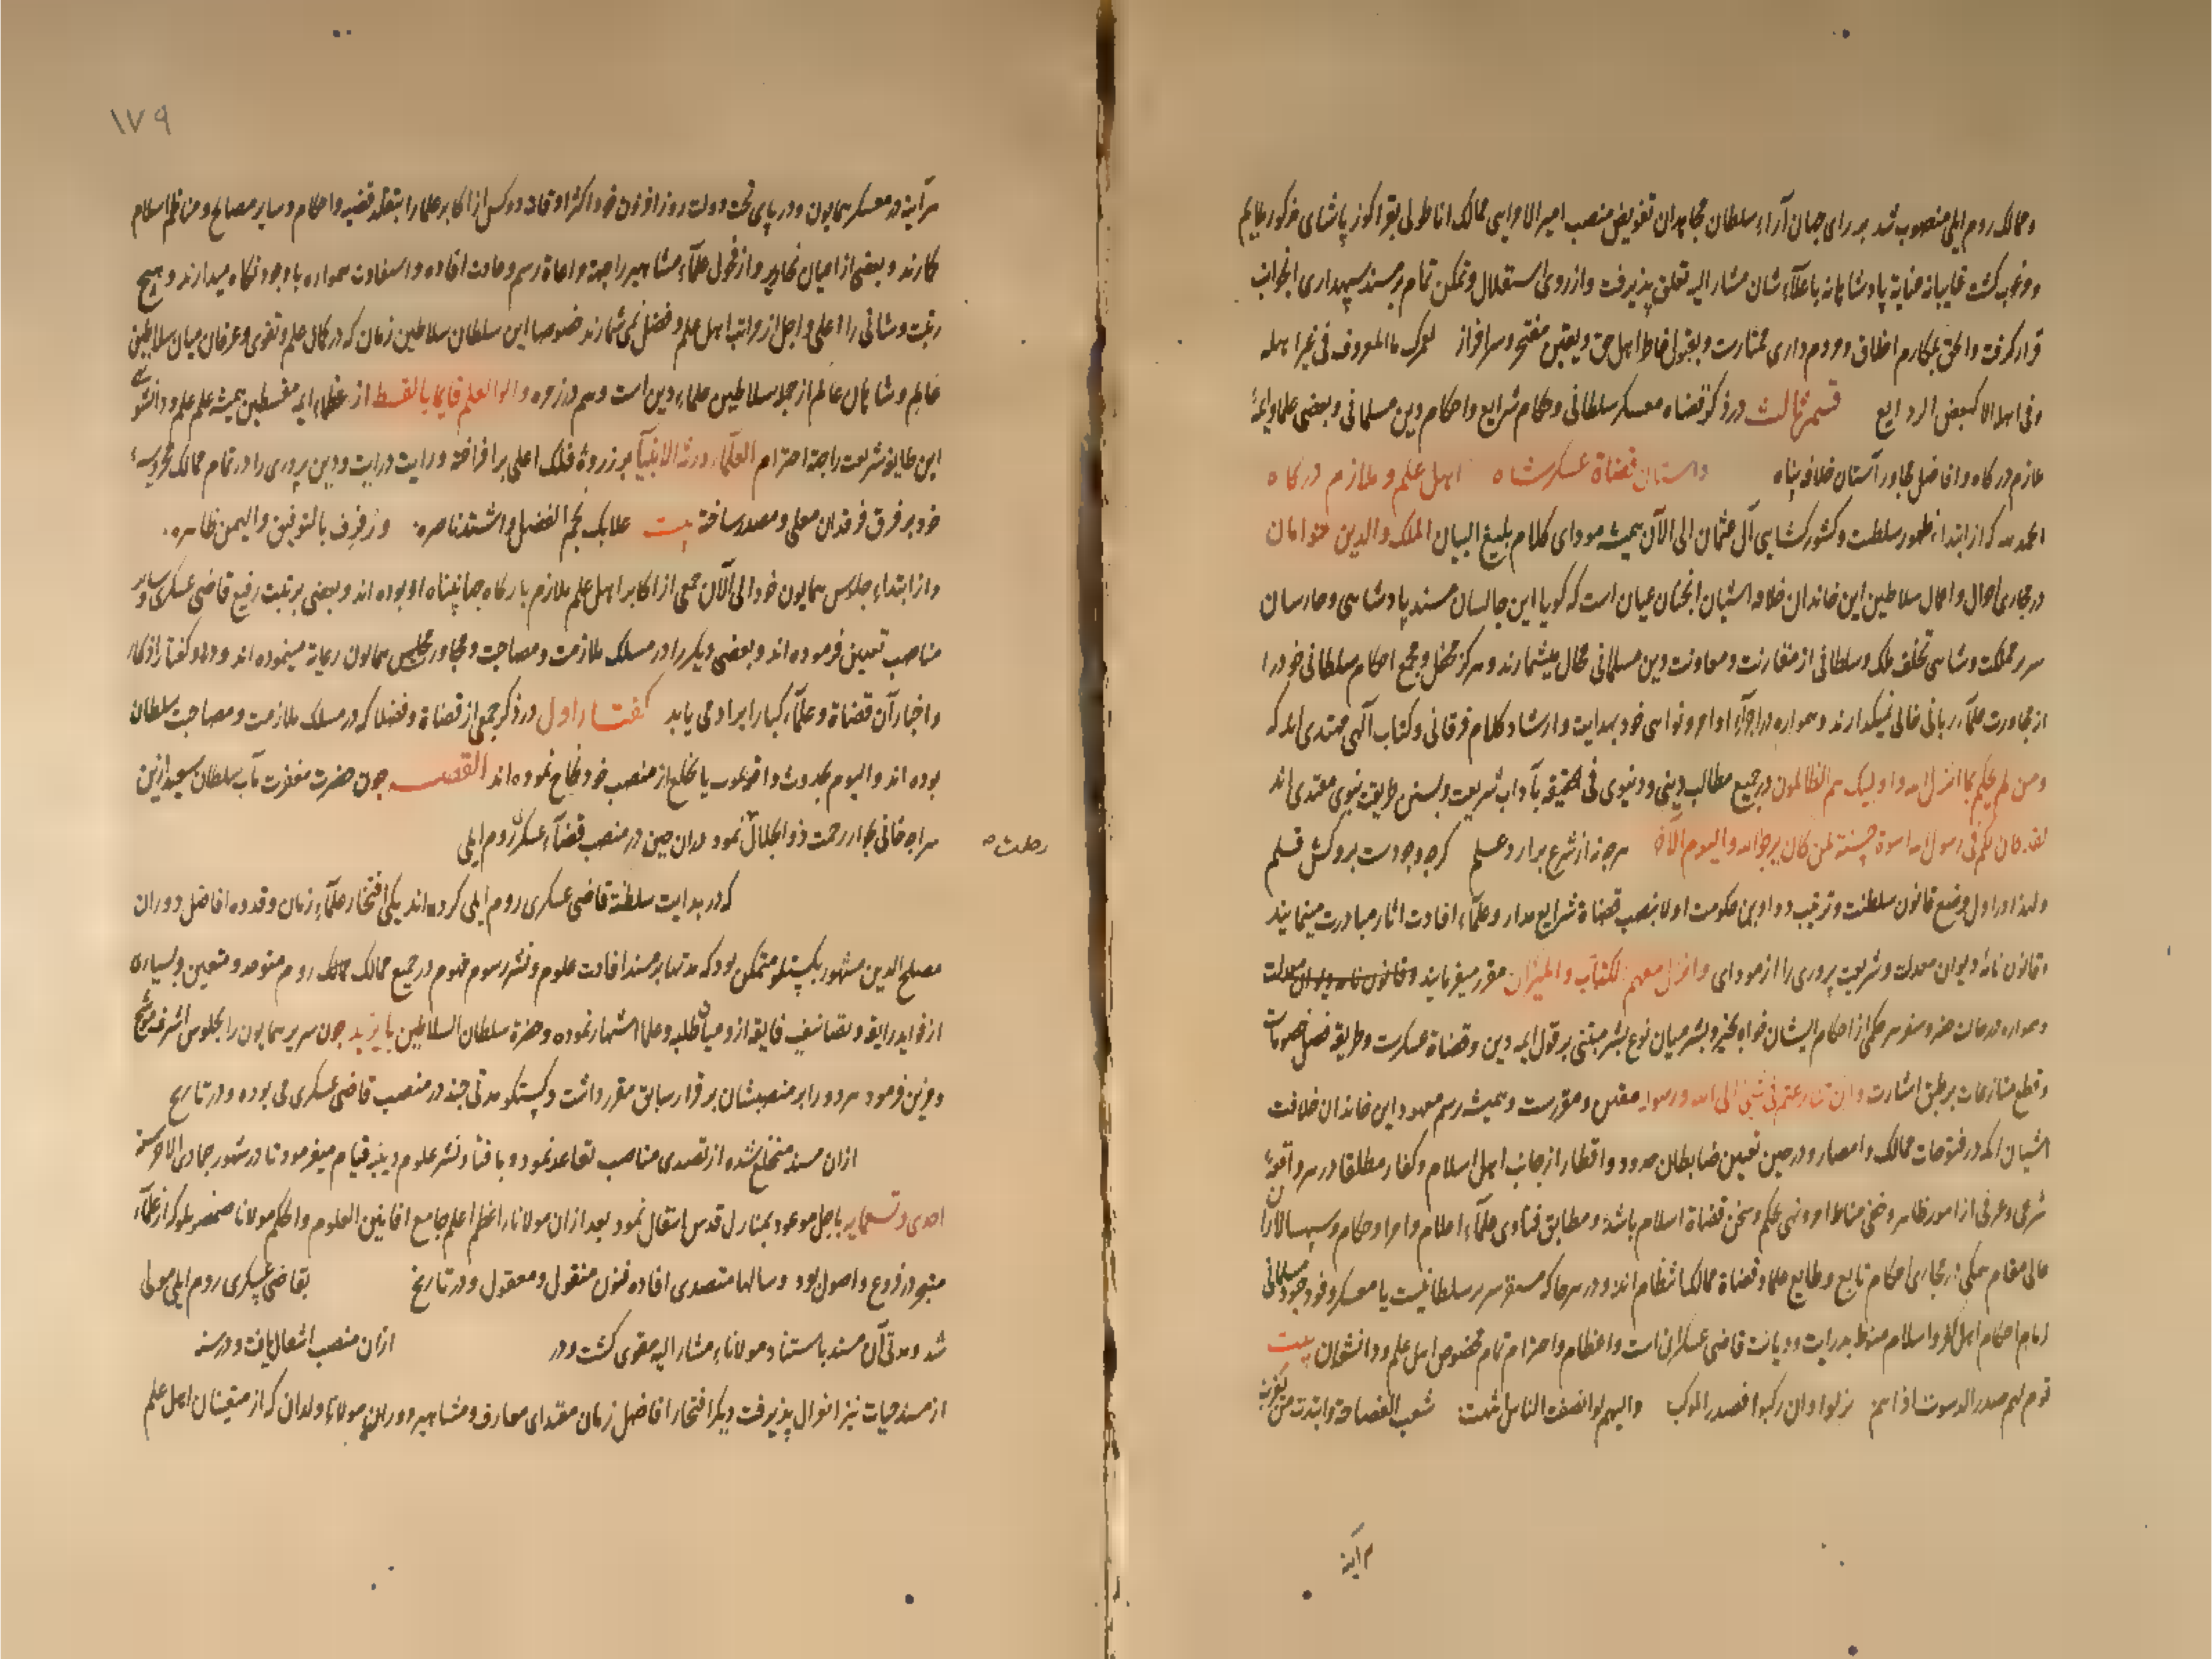 وممالک روم ایلی منصوب شد بر رای جهان آراء سلطان مجاهدان تفویض منصب امیر الامرایی ممالک اناطولی بقراکوز پاشای مذکور ملایم
و موجب کشت غایبانه عنایة پادشاهانه باعلاء شان مشار الیه تعلق پذیرفت و از روی استقلال و تمکن تمام بر مسند سپهداری انجوانب
قرار کرفت والحق بمکارم اخلاق و مردم داری ممتازست و بقبول خاطر اهل حق و یقین مفتخر و سرافراز لعمرک ما المعروف فی غیر اهله
وفی اهله الا کبعض الودایع قسم ثالث در ذکر قضاه معسکر سلطانی و حکام شرایع و احکام دین مسلمانی و بعضی علماء و ایمهٔ
عازم درکاه و افاضل مجاور آستان خلافه پناه داستان قضاة عسکر شاه اهل علم و ملازم درکاه
الحمد لله که از ابتداء ظهور سلطنت و کشور کشایی آل عثمان الی الآن همیشه مودای کلام بلیغ البیان الملک والدین توامان
در مجاری احوال و اعمال سلاطین این خاندان خلافه اشیان انچنان عیان است که کویا این جالسان مسند پادشاهی و حارسان
سریر مملکت و شاهی تخلف ملک و سلطانی از مقارنت و معاونت دین مسلمانی محال میشمارند و مرکز محفل و مجمع احکام سلطانی خود را
از مجاورت علماء ربانی خالی نمیکذارند و همواره در اجراء اوامر و نواهی خود بهدایت و ارشاد کلام فرقانی و کتاب آلهی مهتدی اند که
ومن لم یحکم بما انزل الله فاولیک هم الظالمون در جمیع مطالب دینی و دنیوی فی الحقیقه بآداب شریعت و بسنن طریقت نبوی مقتدی اند
لقد کان لکم فی رسول الله اسوة حسنة لمن کان یرجو الله والیوم الآخر هرچه نه از شرع برآرد علم کر چه وجودست برو کش قلم
ولهذا در اول وضع قانون سلطنت و ترتیب دواوین حکومت اولا بنصب قضاة شرایع مدار و علماء افادت اثار مبادرت مینمایند
و قانون نامهٔ دیوان معدلت و شریعت پروری را از مودای وانزل معهم الکتاب والمیزان مقرر میفرمایند و قانون نامه دیوان معدلت
و همواره در حالت حضر و سفر هر حکمی از احکام ایشان خواه بخیر و بشر میان نوع بشر مبتنی بر قول ایمه دین و قضاة عسکرست و طریقه فصل خصومات
و قطع منازعات بر طبق اشارت فان تنازعتم فی شیئ الی الله ورسوله مقنن و مقررست و همیشه رسم معهود این خاندان خلافت
اشیان انکه در فتوحات ممالک و امصار و در حین تعیین ضابطان حدود و اقطار از جانب اهل اسلام و کفار مطلقا در هر واقعهٔ
شرعی و عرفی از امور ظاهر و خفی مناط امر و نهی بحکم و سخن قضاة اسلام باشد و مطابق فتاوی علماء اعلام و امرا و حکام و سپهسالاران
عالی مقام همکی در مجاری احکام تابع و طایع علما و قضاة ممالک انتظام اند و در هر جا که مستقر سریر سلطانیست یا معسکر وفود جنود مسلمانی
زمام احکام اهل کفر و اسلام منوط بدرایت و دیانت قاضی عسکران است و اعظام و احترام تمام مخصوص اهل علم و دانشوران بیت
قوم لهم صدر الدسوت اذا هم نزلوا وان رکبوا فصدر الموکب والیهم لو انصف الناس انتهت شعب الفصاحة وابتدت من
هرآینه
۱۷۹
هرآینه در معسکر همایون و در پای تخت دولت روز افزون خود اکثر اوقات دو کس از اکابر علما را بتقلد قضیه و احکام و سایر مصالح و مناظم اسلام
کارند و بعضی از اعیان نحاریر و از فحول علماء مشاهیر راجهة واحاة رسم و عادت افاده و استفادت همواره با وجود نکاه میدارند و هیچ
رتبت و شانی را اعلی و اجل از مراتب اهل علم و فضل نمی شمارند خصوصا این سلطان سلاطین زمان که در کمال علم و تقوی و عرفان میان سلاطین
عالم و شاهان عالم از جمله سلاطین علماء دین است و هم در زمره واولوا العلم قایما بالقسط از عظماء ایمه مقسطین همیشه علم علم و دانشوری
این طایفه شریعت راجهة احترام العلماء ورثة الانبیاء بر زروهٔ فلک اعلی برافراخته و رایت درایت و دین پروری را در تمام ممالک محروسهٔ
خود بر فرق فرقدان معلی و مصعد ساخته بیت علا بک نجم الفضل واشتد ناصره ورفرف بالتوفیق والیمن طایره
و از ابتداء جلوس همایون خود الی الآن جمعی از اکابر اهل علم ملازم بارکاه جهانپناه او بوده اند و بعضی برتبت رفیع قاضی عسکری و سایر
مناصب تعیین فرموده اند و بعضی دیکر را در مسلک ملازمت و مصاحبت و مجاور مجلس همایون رعایة مینموده اند و در دو کفتار اذکار
و اخبار آن قضاة و علماء کبار ایراد می یابد کفتار اول در ذکر جمعی از قضاة و فضلا که در مسلک ملازمت و مصاحبت سلطان
بوده اند و الیوم بحدوث واقعه موت یا بخلع از منصب خود نکاح نموده اند القصه چون حضرت مغفرت مآب سلطان سعید ازین
سرای فانی بجوار رحمت ذو الجلال نمود در ان حین در منصب قضاء عسکر روم ایلی
رحلت صح
که در بدایت سلطنة قاضی عسکری روم ایلی کرده اند یکی افتخار علماء زمان و قدوه افاضل دوران
مصلح الدین مشهور بکستلو متمکن بود که مدتها بر مسند افادت علوم و نشر رسوم فهوم در جمیع ممالک ممالک روم متوحد و متعین و بسیاری
از فواید رایقه و تصانیف فایقه از و میان طلبه و علما اشتهار نموده و حضرة سلطان السلاطین بایزید چون سریر همایون را بجلوس اشرف موشح
و مزین فرمود هر دو را بر منصبشان برقرار سابق مقرر داشت و کستلو مدتی چند در منصب قاضی عسکری می بوده و در تاریخ
ازان مسند منخلع شده از تصدی مناصب تقاعد نمود و بافشاء و نشر علوم دینیه قیام میفرمود تا در شهور جمادی الاخر سنه
احدی و تسعمایه باجل موعود بمنازل قدس انتقال نمود بعد ازان مولانا اعظم اعلم جامع افانین العلوم والحکم مولانا که از علماء
متبحر در فروع و اصول بود و سالها متصدی افاده فنون منقول و معقول و در تاریخ بقاضی عسکری روم ایلی مولی
شد و مدتی آن مسند باستناد مولانا مشار الیه مقوی کشت و در ازان منصب انتقال یافت و در سنه
از مسند حیات نیز انعزال پذیرفت دیکر افتخار افاضل زمان مقتدای معارف و مشاهیر دوران مولانا ولدان که از متعینان اهل علم